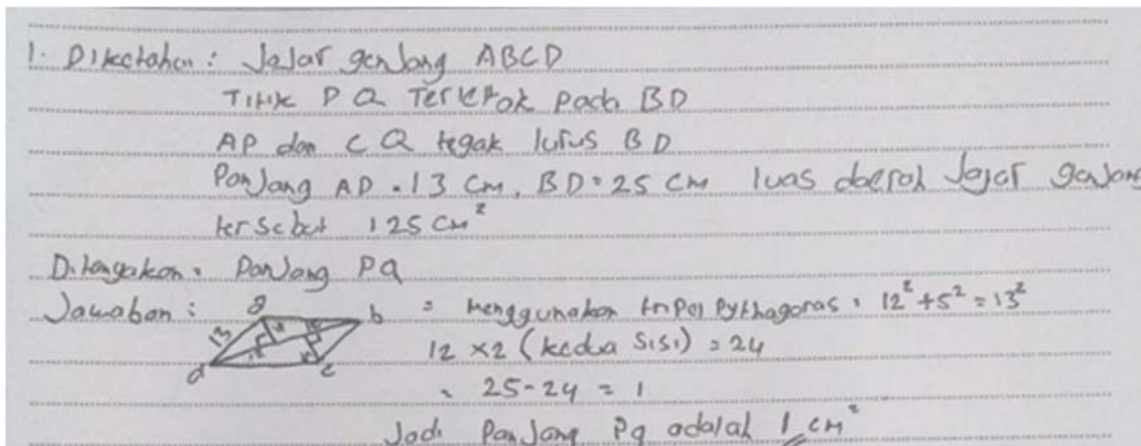 1. Diketahui : Jajar genjang ABCD
Titik P Q Terletak pada BD
AP dan CQ tegak lurus BD
Panjang AD = 13 cm, BD = 25 cm luas daerah Jajar genjang
tersebut 125 cm²
Ditanyakan : Panjang PQ
Jawaban : = Menggunakan tripel Pythagoras : 12² + 5² = 13²
a b 13 d c
12 × 2 (kedua sisi) = 24
= 25 - 24 = 1
Jadi Panjang Pq adalah 1 cm²